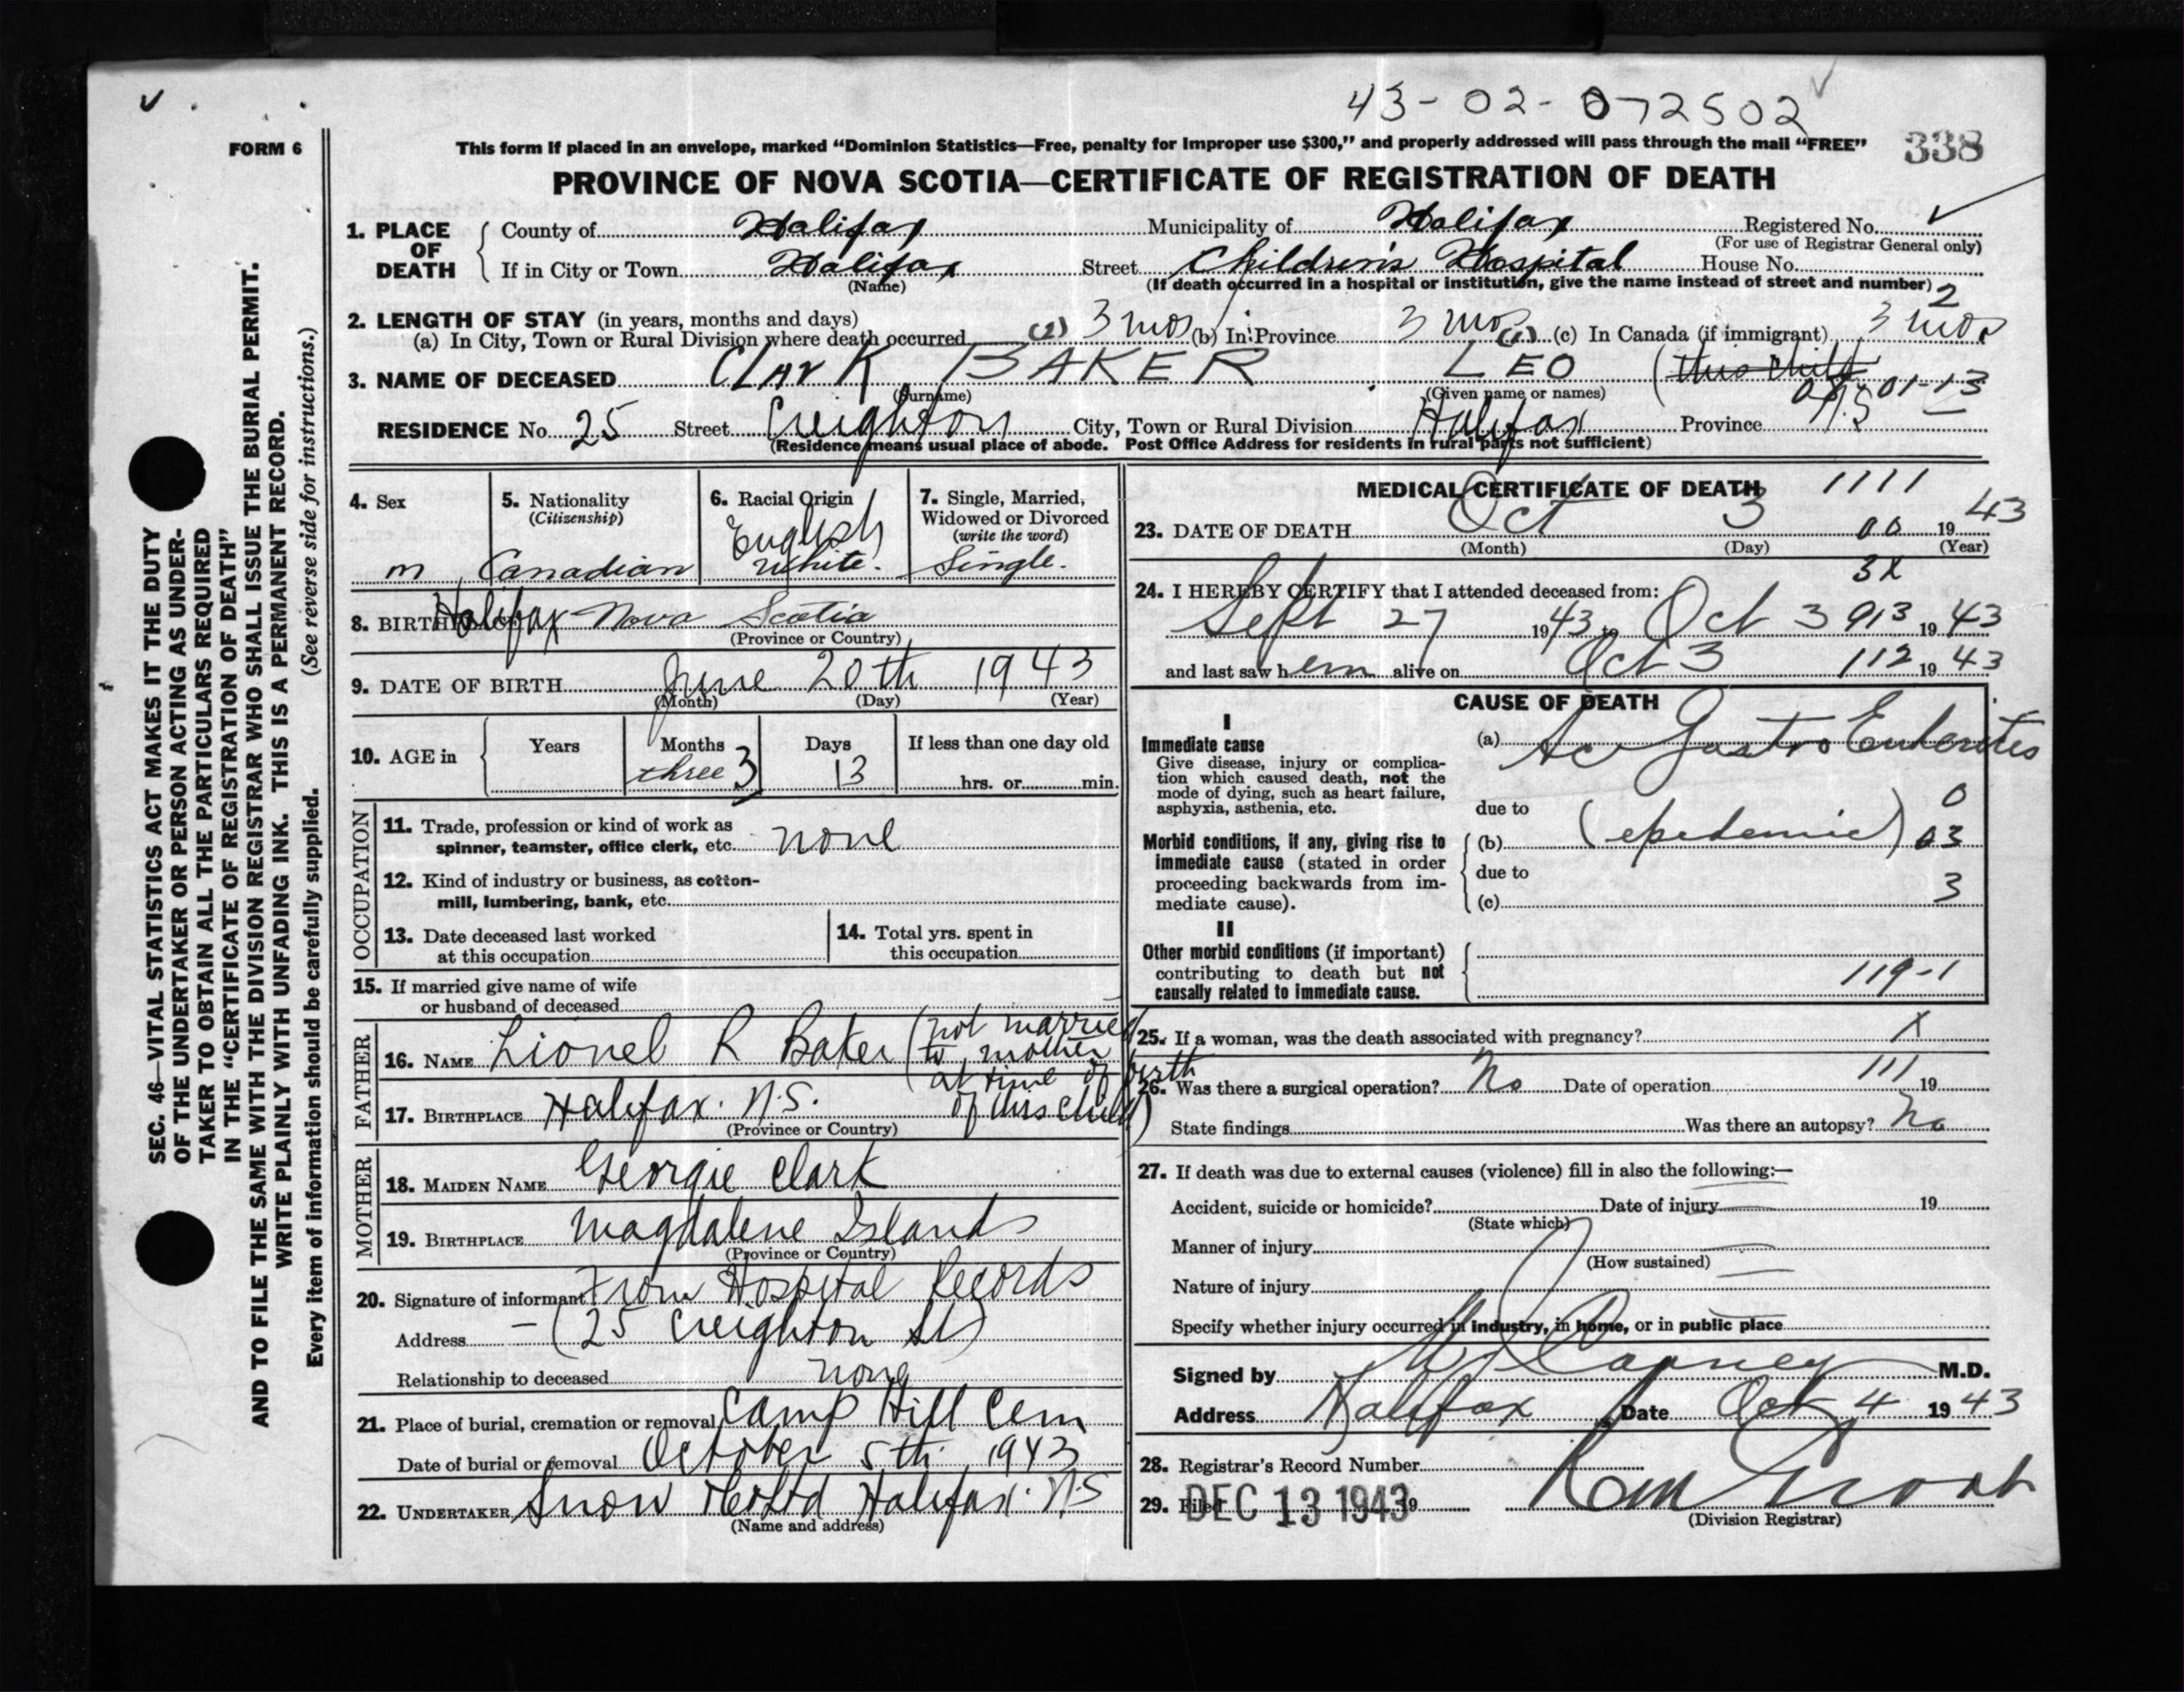 43-02-072502
338
FORM 6
This form if placed in an envelope, marked “Dominion Statistics—Free, penalty for improper use $300,” and properly addressed will pass through the mail “FREE”
PROVINCE OF NOVA SCOTIA—CERTIFICATE OF REGISTRATION OF DEATH
1. PLACE OF DEATH County of Halifax Municipality of Halifax Registered No.
(For use of Registrar General only)
If in City or Town Halifax Street Children's Hospital House No.
(Name) (If death occurred in a hospital or institution, give the name instead of street and number)
2
2. LENGTH OF STAY (in years, months and days)
(a) In City, Town or Rural Division where death occurred 3 mos (b) In Province 3 mos (c) In Canada (if immigrant) 3 mos
3. NAME OF DECEASED Clark BAKER LEO (this child
(Surname) (Given name or names)
01-13
RESIDENCE No. 25 Street Creighton City, Town or Rural Division Halifax Province N.S
(Residence means usual place of abode. Post Office Address for residents in rural parts not sufficient)
4. Sex
m
5. Nationality
(Citizenship)
Canadian
6. Racial Origin
English
White.
7. Single, Married,
Widowed or Divorced
(write the word)
Single.
8. BIRTH Halifax Nova Scotia
(Province or Country)
9. DATE OF BIRTH June 20th 1943
(Month) (Day) (Year)
10. AGE in Years Months Days If less than one day old
three 3 13 hrs. or min.
OCCUPATION
11. Trade, profession or kind of work as
spinner, teamster, office clerk, etc. none
12. Kind of industry or business, as cotton-
mill, lumbering, bank, etc.
13. Date deceased last worked
at this occupation
14. Total yrs. spent in
this occupation
15. If married give name of wife
or husband of deceased
FATHER
16. NAME Lionel R Baker (not married
to mother
at time of birth
of this child)
17. BIRTHPLACE Halifax. N.S.
(Province or Country)
MOTHER
18. MAIDEN NAME Georgie Clark
19. BIRTHPLACE Magdalene Islands
(Province or Country)
20. Signature of informant From Hospital Records
Address — (25 Creighton St)
Relationship to deceased none
21. Place of burial, cremation or removal Camp Hill Cem
Date of burial or removal October 5th 1943
22. UNDERTAKER Snow & Co Ltd Halifax. N.S
(Name and address)
MEDICAL CERTIFICATE OF DEATH 1111
23. DATE OF DEATH Oct 3 00 1943
(Month) (Day) (Year)
3X
24. I HEREBY CERTIFY that I attended deceased from:
Sept 27 1943 to Oct 3 913 1943
and last saw h em alive on Oct 3 112 1943
CAUSE OF DEATH
I
Immediate cause
Give disease, injury or complica-
tion which caused death, not the
mode of dying, such as heart failure,
asphyxia, asthenia, etc.
(a) Ac Gastro Enterites
due to
0
Morbid conditions, if any, giving rise to
immediate cause (stated in order
proceeding backwards from im-
mediate cause).
(b) (epedemic) 03
due to
3
(c)
II
Other morbid conditions (if important)
contributing to death but not
causally related to immediate cause.
119-1
25. If a woman, was the death associated with pregnancy? X
26. Was there a surgical operation? No Date of operation 111 19
State findings Was there an autopsy? No
27. If death was due to external causes (violence) fill in also the following:—
Accident, suicide or homicide? Date of injury 19
(State which)
Manner of injury
(How sustained)
Nature of injury
Specify whether injury occurred in industry, in home, or in public place
Signed by M.D.
Address Halifax Date Oct 4 1943
28. Registrar's Record Number
29. Filed DEC 13 1943 19
(Division Registrar)
SEC. 46—VITAL STATISTICS ACT MAKES IT THE DUTY
OF THE UNDERTAKER OR PERSON ACTING AS UNDER-
TAKER TO OBTAIN ALL THE PARTICULARS REQUIRED
IN THE “CERTIFICATE OF REGISTRATION OF DEATH”
AND TO FILE THE SAME WITH THE DIVISION REGISTRAR WHO SHALL ISSUE THE BURIAL PERMIT.
WRITE PLAINLY WITH UNFADING INK. THIS IS A PERMANENT RECORD.
Every item of information should be carefully supplied. (See reverse side for instructions.)